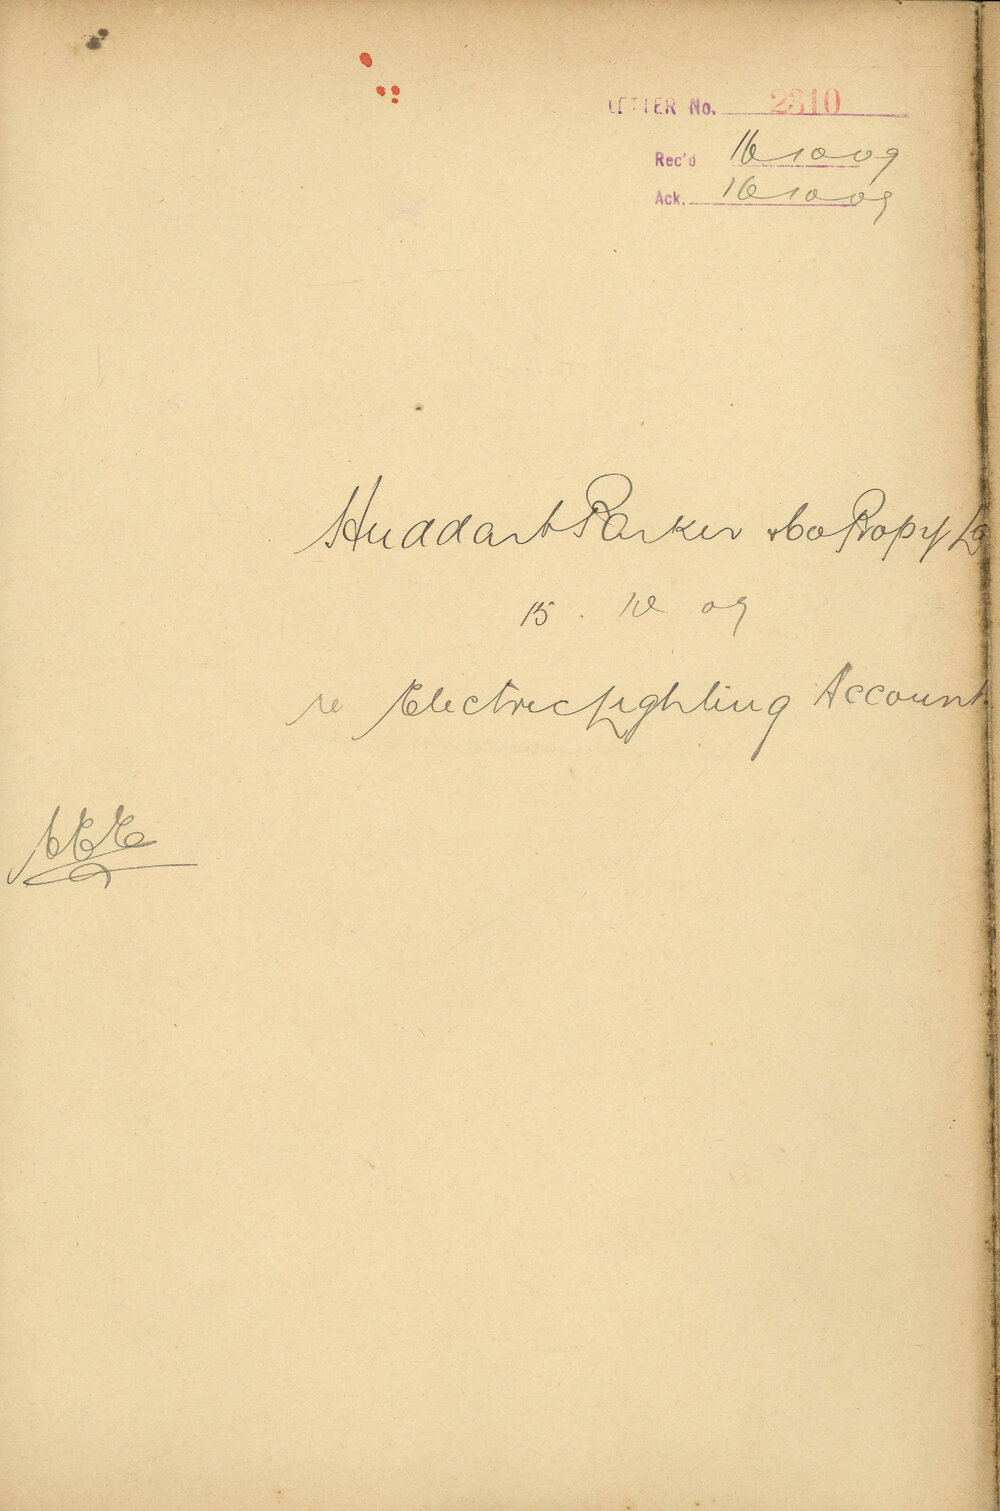 LETTER No. 2310
Rec'd 16 10 09
Ack. 16 10 09
Huddart Parker & Co Propy
15. 10 09
re Electric Lighting Account